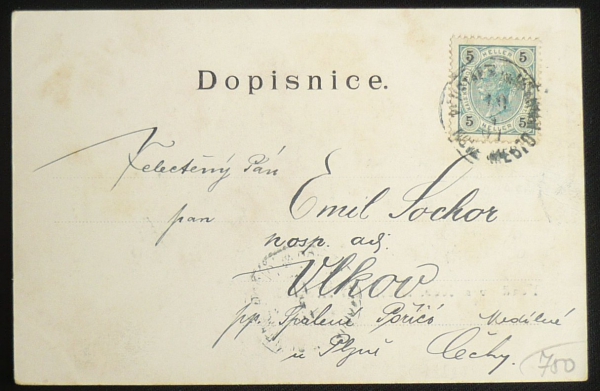 5 5
HELLER
5 5
Dopisnice.
Velectěný Pán
pan Emil Sochor
hosp. adj.
Vlkov
pp. Spálené Poříčó
u Plzně Čechy.
750